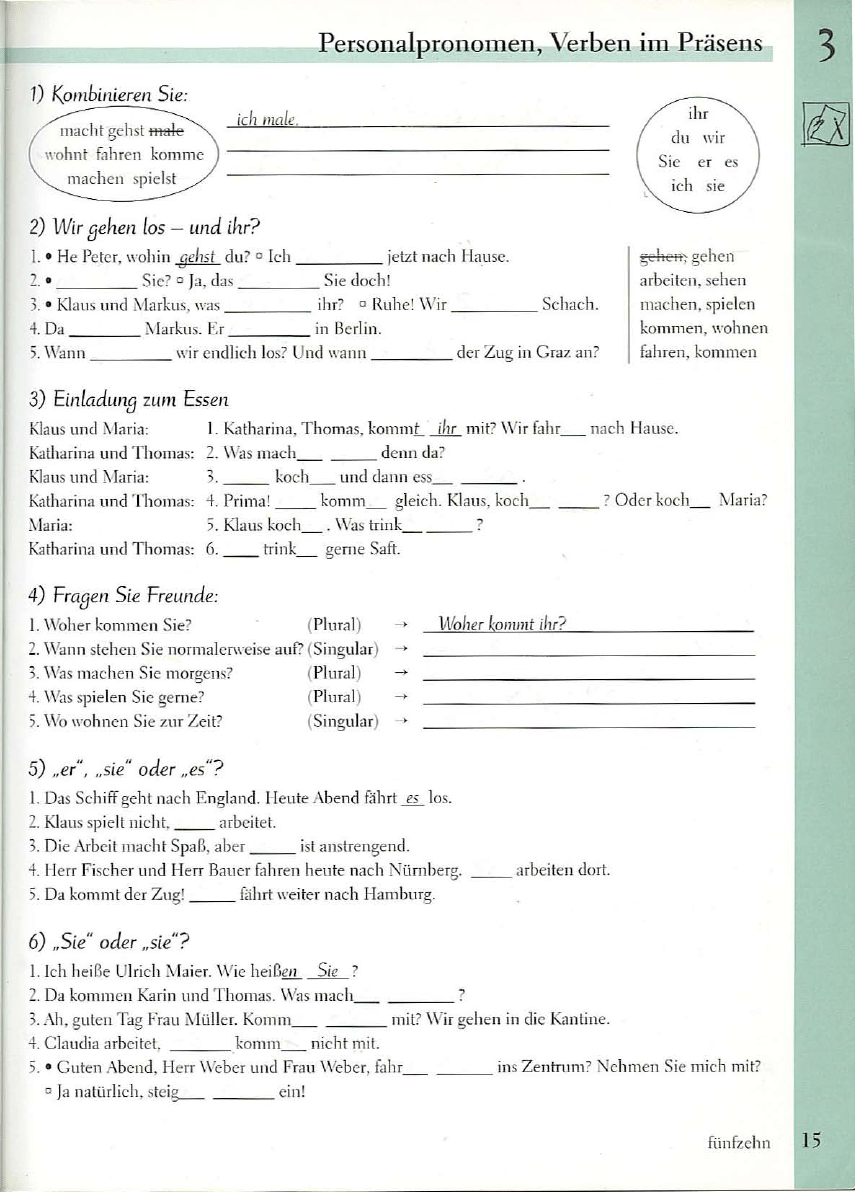 Personalpronomen, Verben im Präsens 3
1) Kombinieren Sie:
macht gehst male
wohnt fahren komme
machen spielst
ich male.
ihr
du wir
Sie er es
ich sie
2) Wir gehen los – und ihr?
1. • He Peter, wohin gehst du? ▫ Ich __________ jetzt nach Hause.
2. • __________ Sie? ▫ Ja, das __________ Sie doch!
3. • Klaus und Markus, was __________ ihr? ▫ Ruhe! Wir __________ Schach.
4. Da __________ Markus. Er __________ in Berlin.
5. Wann __________ wir endlich los? Und wann __________ der Zug in Graz an?
gehen, gehen
arbeiten, sehen
machen, spielen
kommen, wohnen
fahren, kommen
3) Einladung zum Essen
Klaus und Maria: 1. Katharina, Thomas, kommt ihr mit? Wir fahr___ nach Hause.
Katharina und Thomas: 2. Was mach___ _____ denn da?
Klaus und Maria: 3. _____ koch___ und dann ess___ ______ .
Katharina und Thomas: 4. Prima! _____ komm___ gleich. Klaus, koch___ _____ ? Oder koch___ Maria?
Maria: 5. Klaus koch___ . Was trink___ _____ ?
Katharina und Thomas: 6. _____ trink___ gerne Saft.
4) Fragen Sie Freunde:
1. Woher kommen Sie? (Plural) → Woher kommt ihr?
2. Wann stehen Sie normalerweise auf? (Singular) →
3. Was machen Sie morgens? (Plural) →
4. Was spielen Sie gerne? (Plural) →
5. Wo wohnen Sie zur Zeit? (Singular) →
5) „er“, „sie“ oder „es“?
1. Das Schiff geht nach England. Heute Abend fährt es los.
2. Klaus spielt nicht, _____ arbeitet.
3. Die Arbeit macht Spaß, aber _____ ist anstrengend.
4. Herr Fischer und Herr Bauer fahren heute nach Nürnberg. _____ arbeiten dort.
5. Da kommt der Zug! _____ fährt weiter nach Hamburg.
6) „Sie“ oder „sie“?
1. Ich heiße Ulrich Maier. Wie heißen Sie ?
2. Da kommen Karin und Thomas. Was mach___ ________ ?
3. Ah, guten Tag Frau Müller. Komm___ _______ mit? Wir gehen in die Kantine.
4. Claudia arbeitet, _______ komm___ nicht mit.
5. • Guten Abend, Herr Weber und Frau Weber, fahr___ _______ ins Zentrum? Nehmen Sie mich mit?
▫ Ja natürlich, steig___ _______ ein!
fünfzehn 15